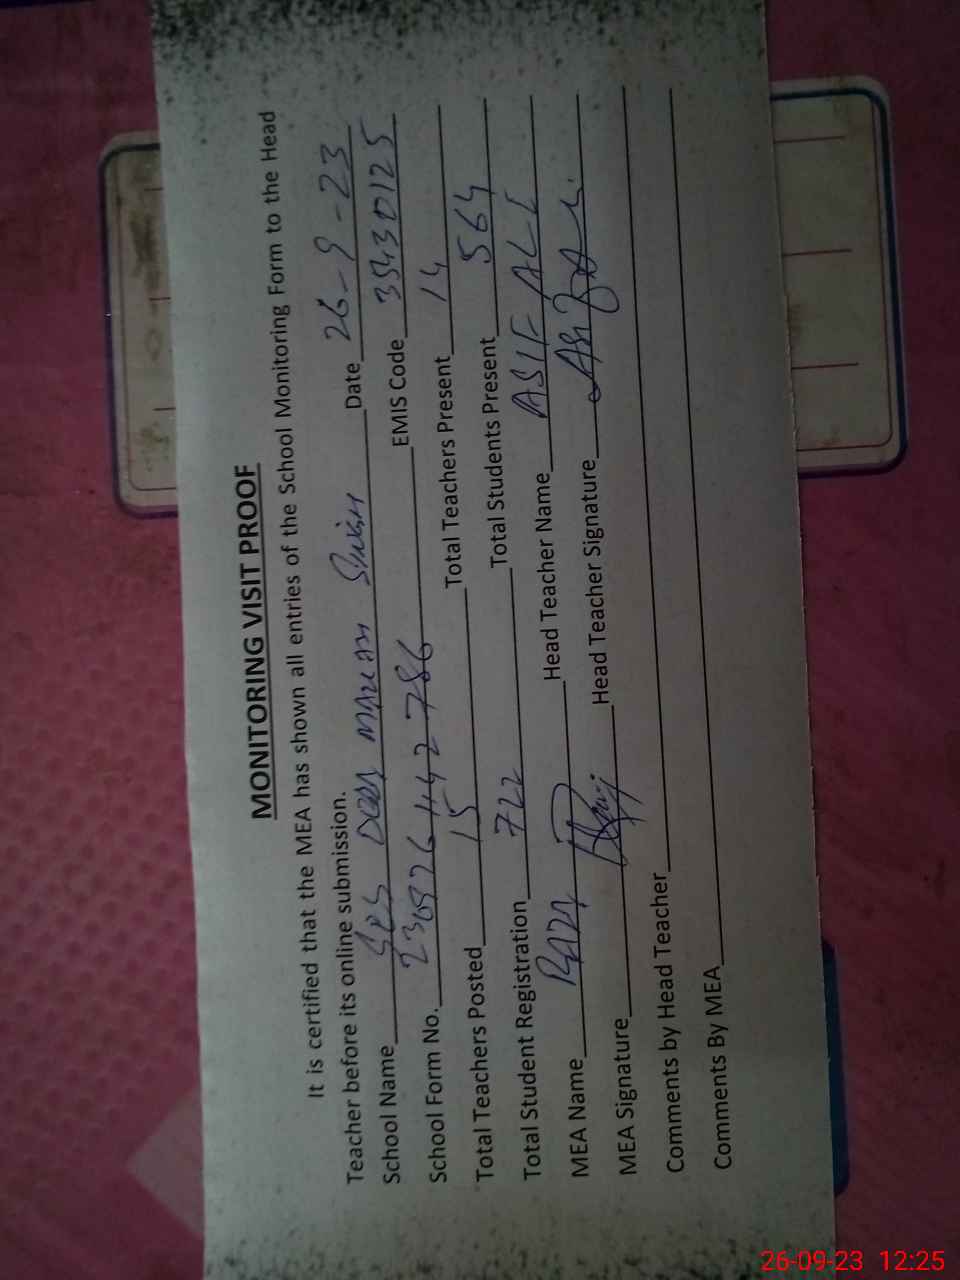 MONITORING VISIT PROOF
It is certified that the MEA has shown all entries of the School Monitoring Form to the Head
Teacher before its online submission.
School Name GPS Singh Date 26-9-23
School Form No. EMIS Code 35430125
Total Teachers Posted 15 Total Teachers Present 14
Total Student Registration 722 Total Students Present 564
MEA Name Head Teacher Name ASIF ALI
MEA Signature Head Teacher Signature
Comments by Head Teacher
Comments By MEA
26-09-23 12:25